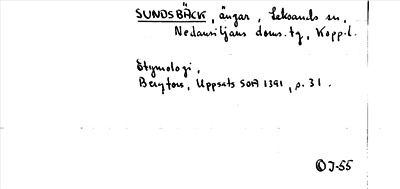 SUNDSBÄCK, ängar, Leksands sn,
Nedansiljans doms.tg, Kopp.l.
Etymologi,
Bergfors, Uppsats SOA 1391, p. 31.
OJ-55